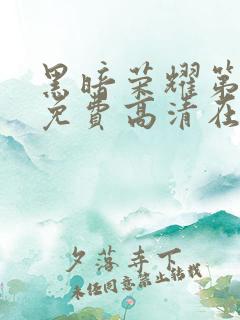 黑暗荣耀第
免费高清在
夕落寺下
未经同意禁止转载